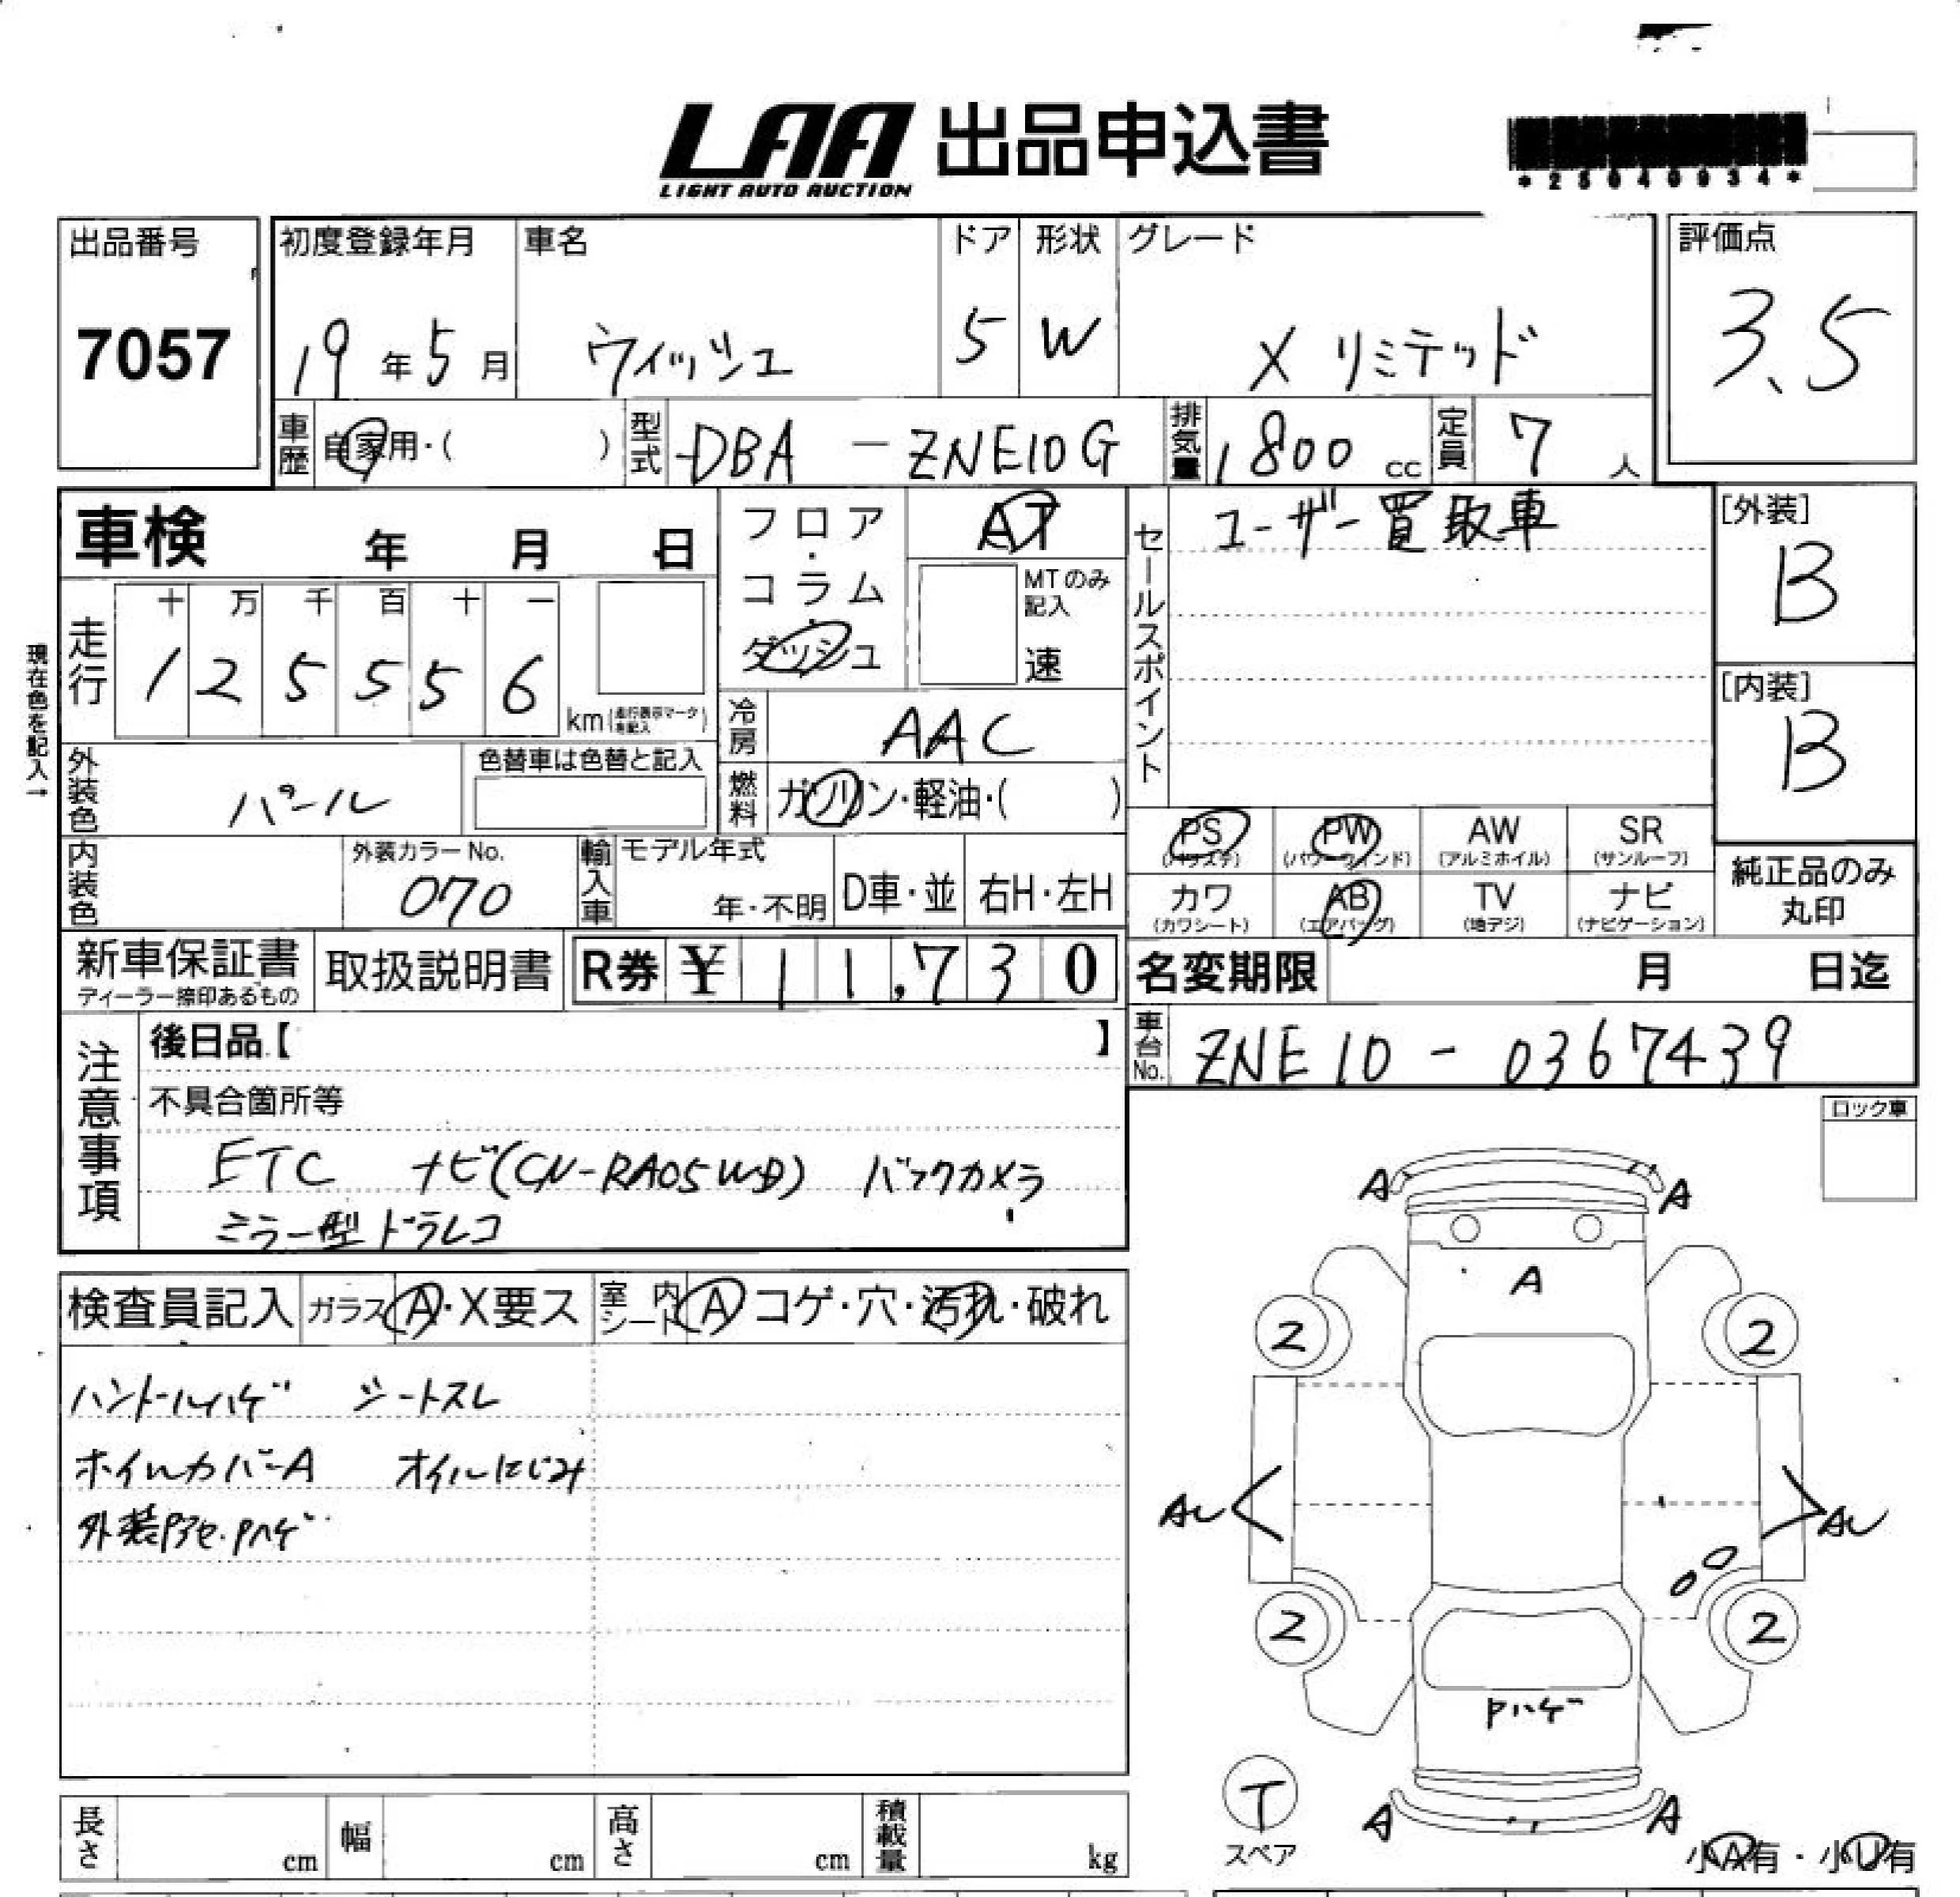 LAA 出品申込書
LIGHT AUTO AUCTION
*25040934*
出品番号
7057
初度登録年月
19年5月
車名
ウィッシュ
ドア
5
形状
W
グレード
X リミテッド
評価点
3.5
車歴
自家用・( )
型式
DBA - ZNE10G
排気量
1800 cc
定員
7 人
車検 年 月 日
フロア・コラム・ダッシュ
AT
MTのみ記入
速
セールスポイント
ユーザー買取車
[外装]
B
[内装]
B
現在色を記入→
走行
十 万 千 百 十 一
1 2 5 5 5 6
km(走行表示マークを記入)
冷房
AAC
燃料
ガソリン・軽油・( )
外装色
パール
色替車は色替と記入
内装色
外装カラーNo.
070
輸入車
モデル年式
年・不明
D車・並
右H・左H
PS
(パワステ)
PW
(パワーウインド)
AW
(アルミホイル)
SR
(サンルーフ)
カワ
(カワシート)
AB
(エアバッグ)
TV
(地デジ)
ナビ
(ナビゲーション)
純正品のみ
丸印
新車保証書
ディーラー捺印あるもの
取扱説明書
R券 ¥ 11,730
名変期限 月 日迄
車台No.
ZNE10 - 0367439
注意事項
後日品【 】
不具合箇所等
ETC ナビ(CN-RA05WD) バックカメラ
ミラー型ドラレコ
ロック車
検査員記入
ガラス A・X要ス
室内シート A コゲ・穴・汚れ・破れ
ハンドルハゲ シートスレ
ホイルカバーA オイルにじみ
外装Pアセ・Pハゲ
A A
A
2 2
AU AU
2 2
Pハゲ
T
スペア
A A
小A有・小U有
長さ cm
幅 cm
高さ cm
積載量 kg